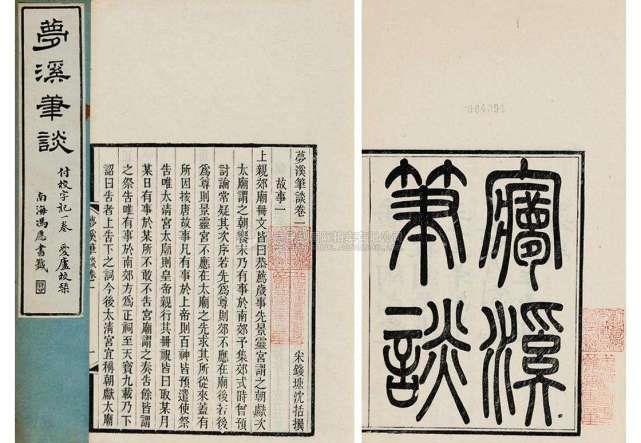 夢溪筆談
付校字記一卷 愛廬校槧
南海馮書籤
夢溪筆談卷一 宋錢塘沈括撰
故事一
上親郊廟冊文皆曰恭薦歲事先景靈宮謂之朝獻次
太廟謂之朝饗末乃有事於南郊予集郊式時曾預
討論常疑其次序若先為尊則郊不應在廟後若後
為尊則景靈宮不應在太廟之先求其所從來蓋有
所因按唐故事凡有事於上帝則百神皆預遣使祭
告唯太清宮太廟則皇帝親行其冊祝皆曰取某月
某日有事於某所不敢不告宮廟謂之奏告餘皆謂
之祭告唯有事於南郊方為正祠至天寶九載乃下
詔曰告者上告下之詞今後太清宮宜稱朝獻太廟
夢溪筆談卷一
一
夢溪
筆談